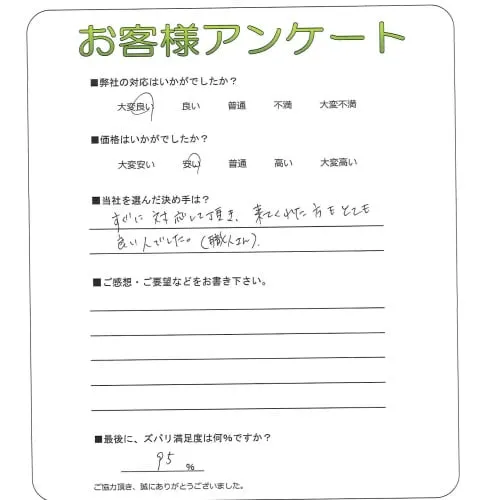 お客様アンケート
■弊社の対応はいかがでしたか？
大変良い 良い 普通 不満 大変不満
■価格はいかがでしたか？
大変安い 安い 普通 高い 大変高い
■当社を選んだ決め手は？
すぐに対応して頂き、来てくれた方もとても
良い人でした。(職人さん).
■ご感想・ご要望などをお書き下さい。
■最後に、ズバリ満足度は何％ですか？
95 %
ご協力頂き、誠にありがとうございました。